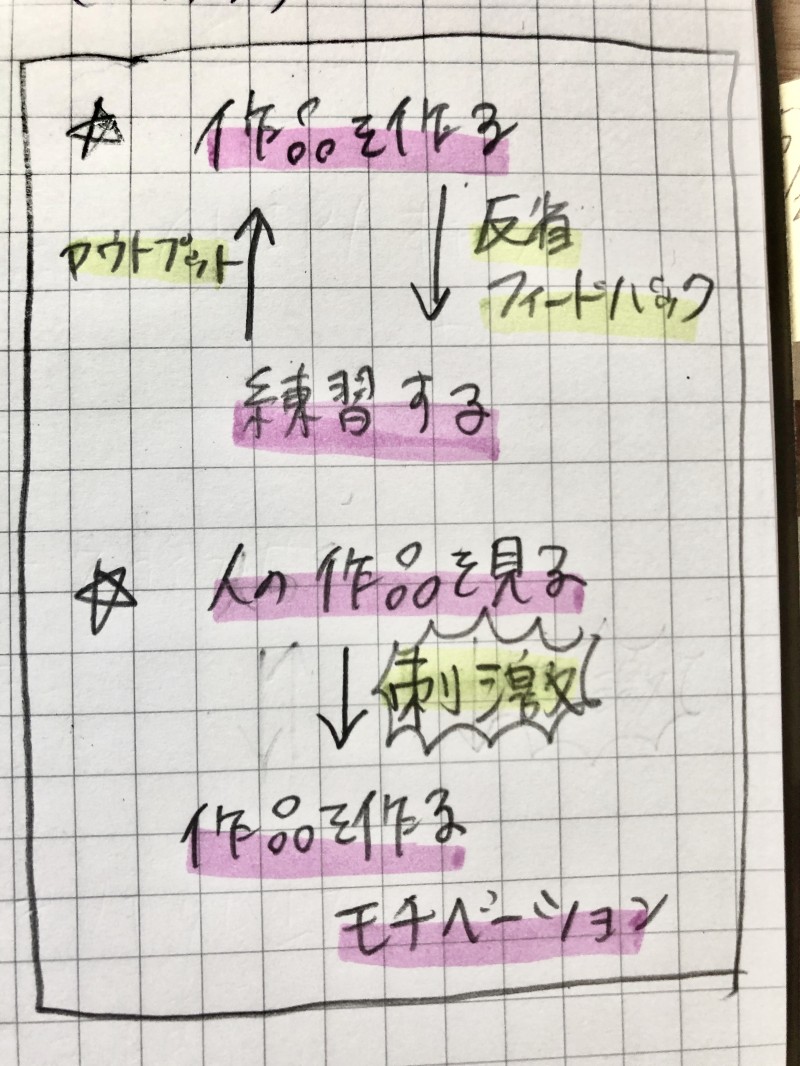 ☆ 作品を作る
アウトプット ↑ ↓ 反省
フィードバック
練習する
☆ 人の作品を見る
↓ 刺激
作品を作る
モチベーション